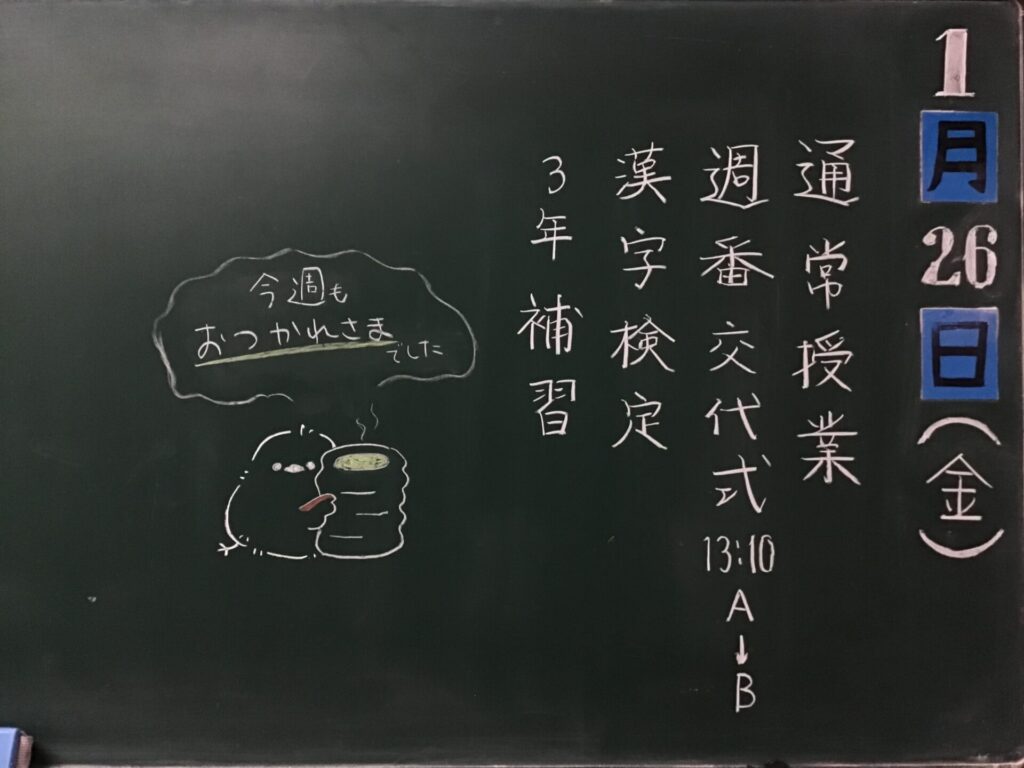 1月26日(金)
通常授業
週番交代式 13:10 A→B
漢字検定
3年 補習
今週も
おつかれさま
でした